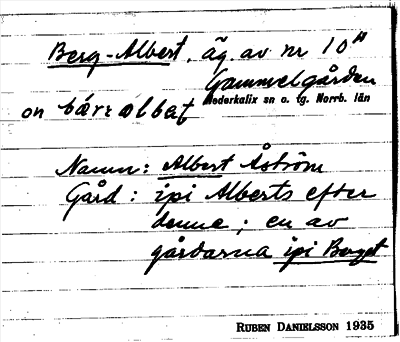 Berg-Albert, äg. av nr 10ᴬ
Gammelgården
Nederkalix sn o. tg. Norrb. län
on bárɛalbat
Namn: Albert Åström
Gård: ipi Alberts efter
denne; en av
gårdarna ipi Berget
RUBEN DANIELSSON 1935